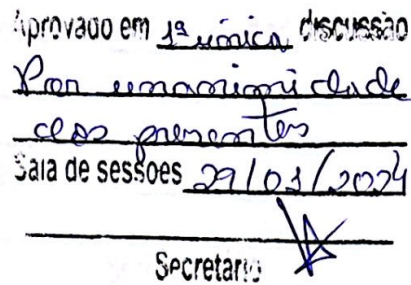 Aprovado em 1ª única discussão
Por unanimidade
dos presentes
Sala de sessões 29/01/2024
Secretario